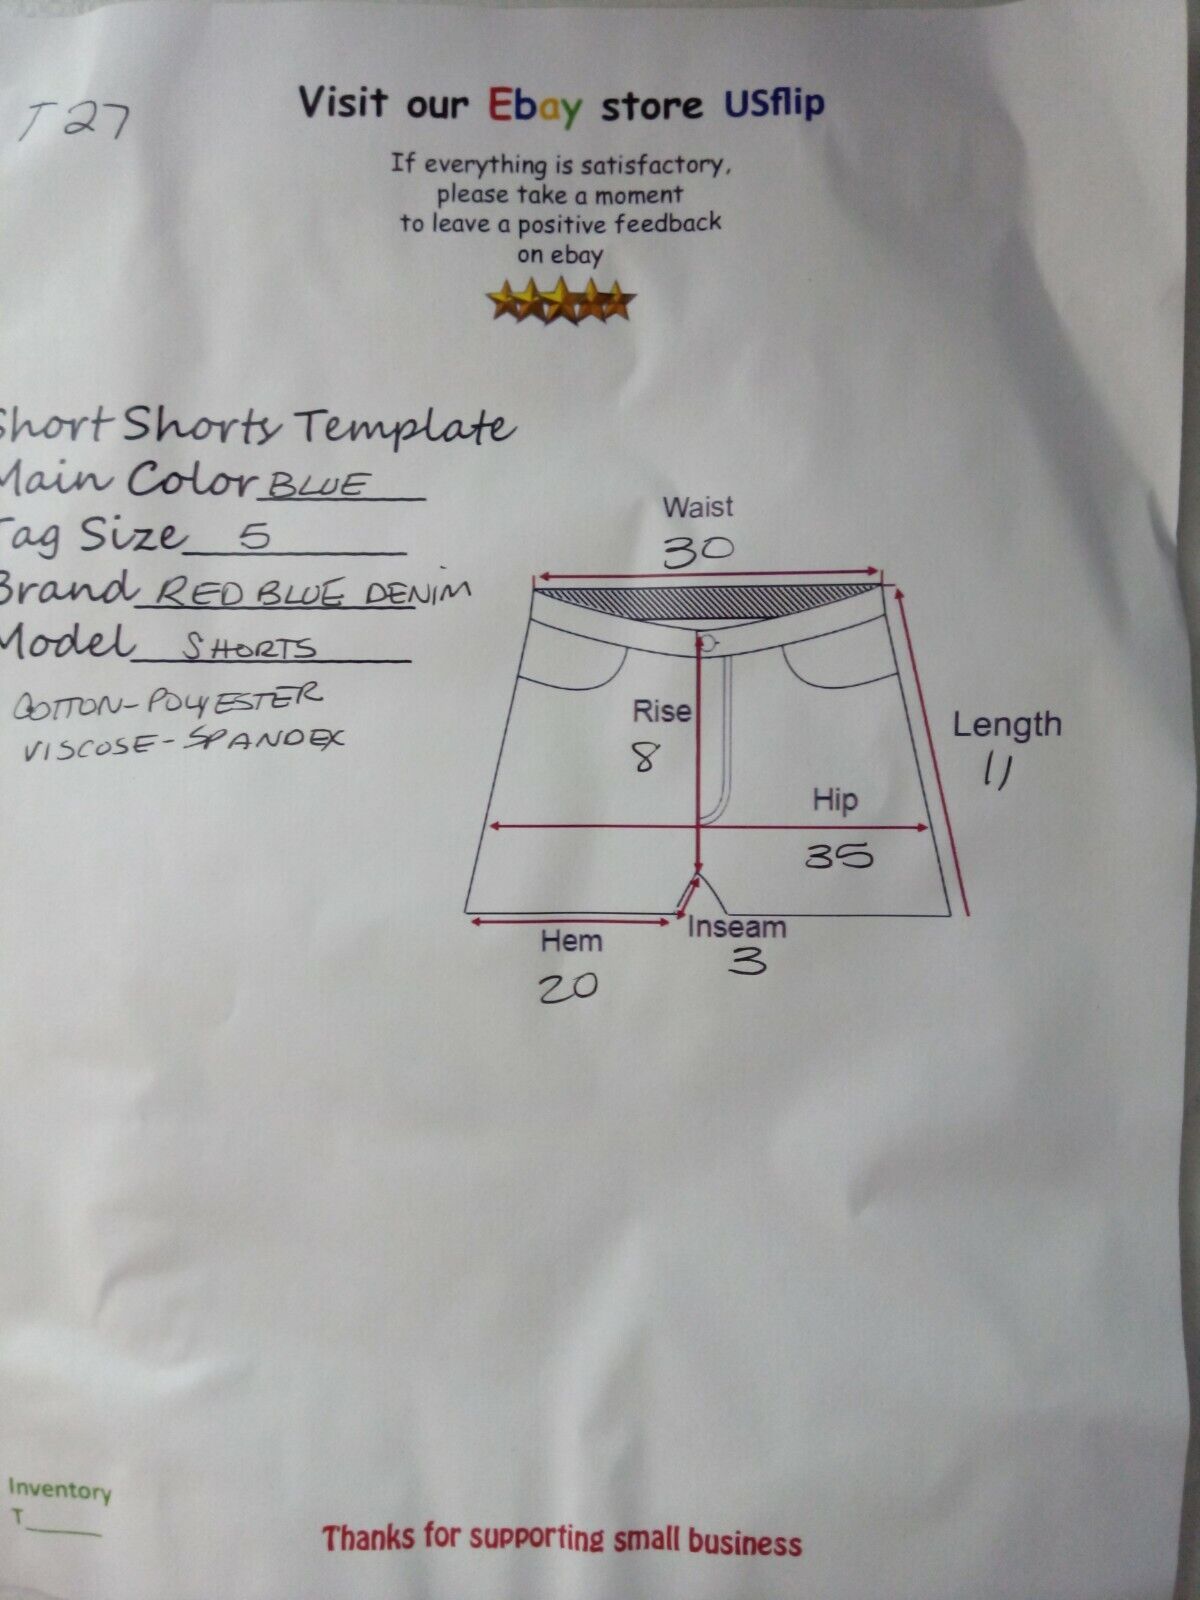 T 27
Visit our Ebay store USflip
If everything is satisfactory,
please take a moment
to leave a positive feedback
on ebay
Short Shorts Template
Main Color BLUE
Tag Size 5
Brand RED BLUE DENIM
Model SHORTS
COTTON-POLYESTER
VISCOSE-SPANDEX
Waist
30
Rise
8
Length
11
Hip
35
Inseam
3
Hem
20
Inventory
T_____
Thanks for supporting small business